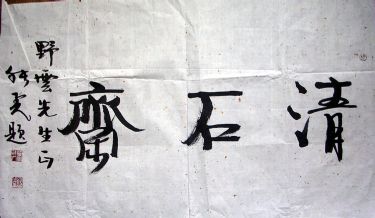 清石齋
野雲先生正